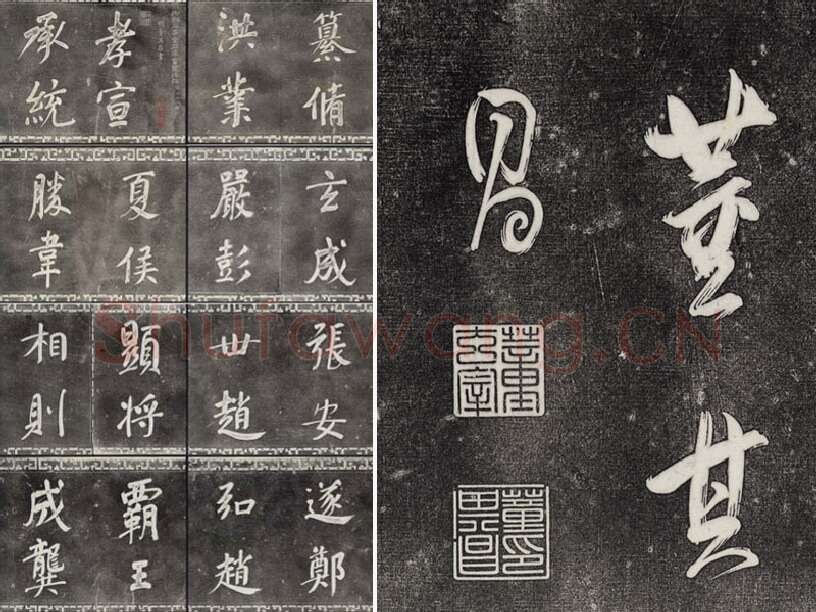 纂脩
洪業
孝宣
承統
玄成
嚴彭
夏侯
勝韋
張安
世趙
顯将
相則
遂鄭
弘趙
覇王
成龔
董其
昌
Shufawang.CN